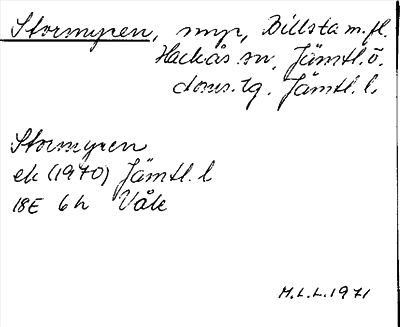 Stormyren, myr, Billsta m.fl.
Hackås sn, Jämtl. ö.
doms.lg. Jämtl. l.
Stormyren
ek (1970) Jämtl. l
18E 6h Våle
M.L.L. 1971